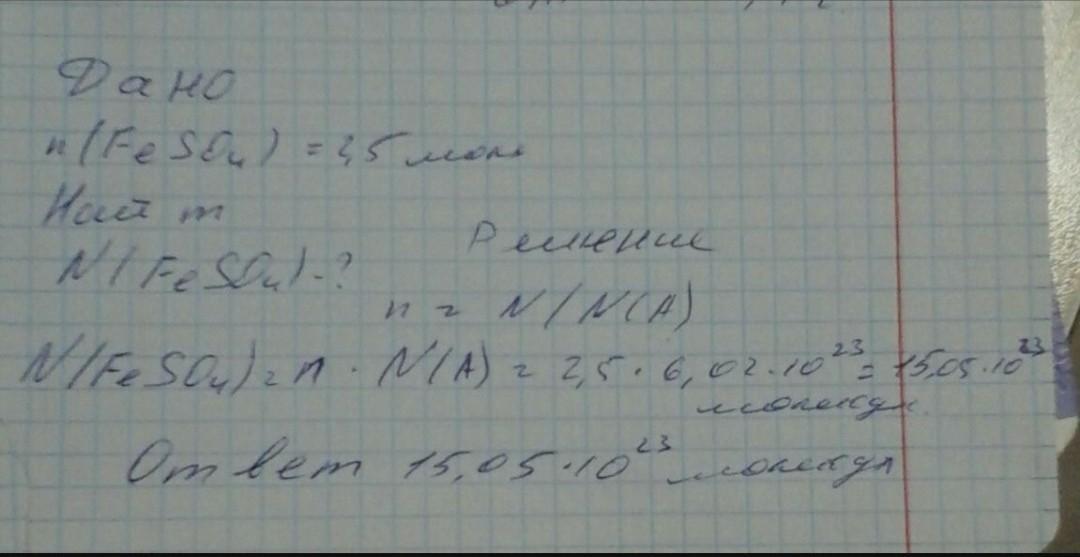 Дано
n(FeSO₄) = 2,5 моль
Найт
N(FeSO₄)-?
Решение
n = N/N(A)
N(FeSO₄) = n · N(A) = 2,5 · 6,02·10²³ = 15,05·10²³
молекул
Ответ 15,05·10²³ молекул